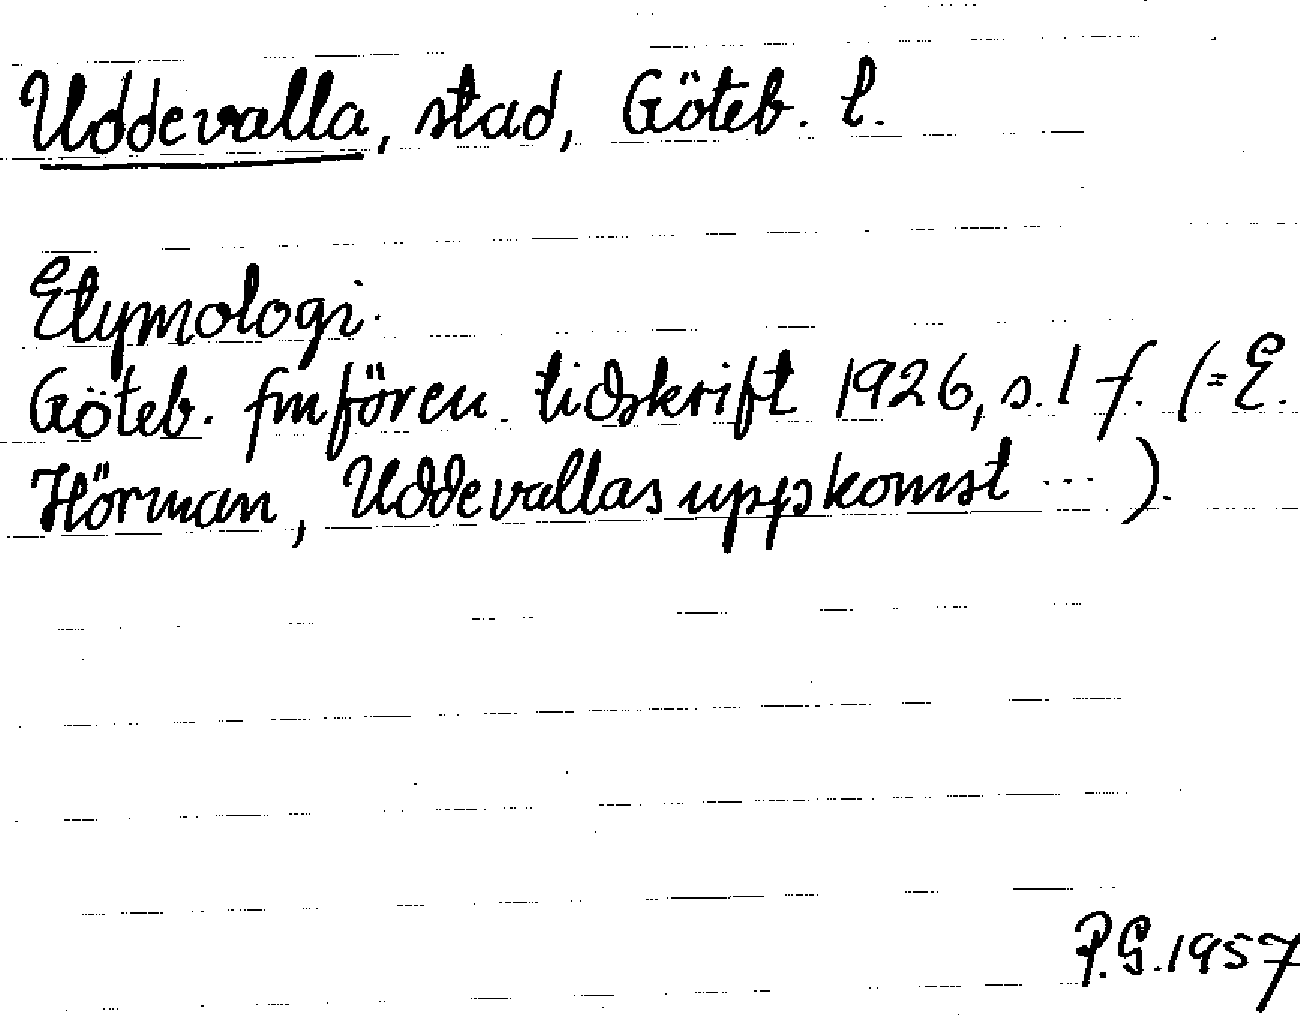 Uddevalla, stad, Göteb. l.
Etymologi.
Göteb. fmfören. tidskrift 1926, s. 1 f. (= E.
Hörman, Uddevallas uppkomst ... ).
P.G. 1957